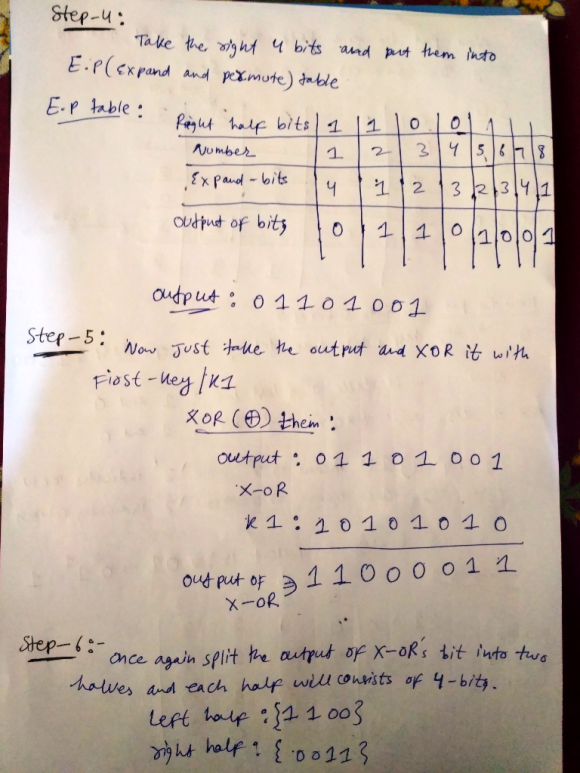 Step-4:
Take the right 4 bits and put them into
E.P(Expand and permute) table
E.P table:
Right half bits | 1 | 1 | 0 | 0 |
Number | 1 | 2 | 3 | 4 | 5 | 6 | 7 | 8
Expand-bits | 4 | 1 | 2 | 3 | 2 | 3 | 4 | 1
Output of bits | 0 | 1 | 1 | 0 | 1 | 0 | 0 | 1
output: 01101001
Step-5: Now Just take the output and XOR it with
First-key/K1
XOR (⊕) them:
output: 01101001
X-OR
K1: 10101010
output of ⇒ 11000011
X-OR
Step-6:- once again split the output of X-OR's bit into two
halves and each half will consists of 4-bits.
left half: {1100}
right half: {0011}